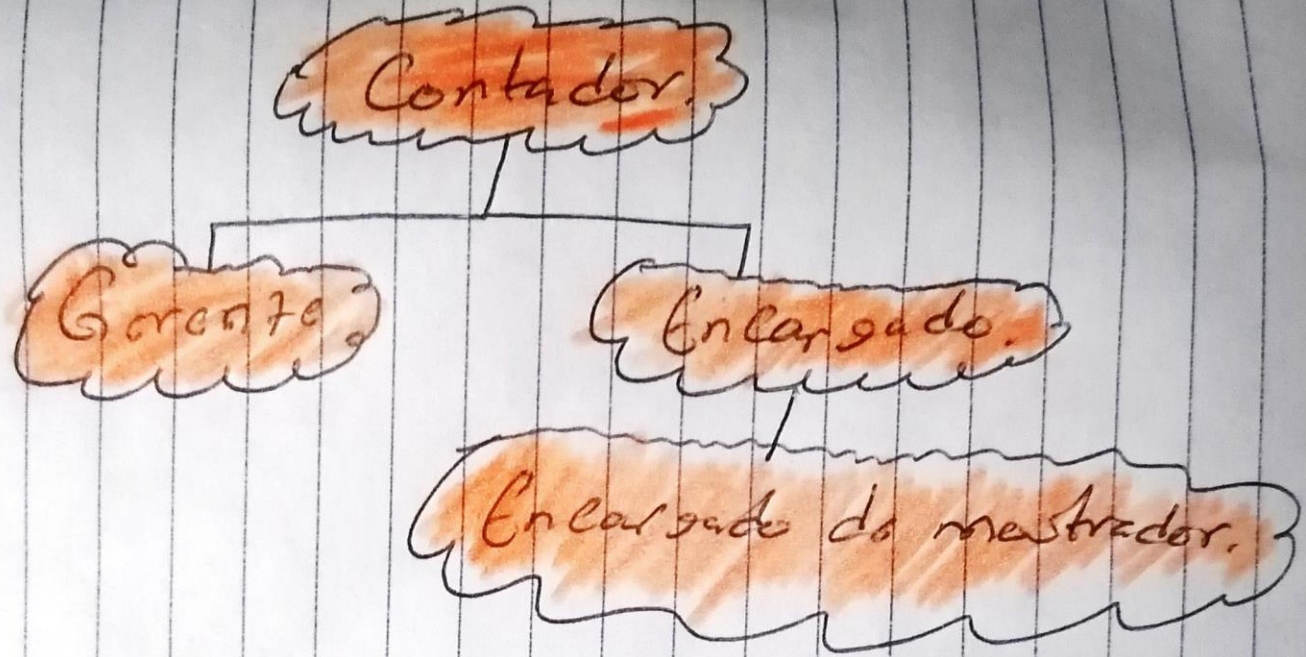 Contador.
Gerente
Encargado.
Encargado de mostrador.